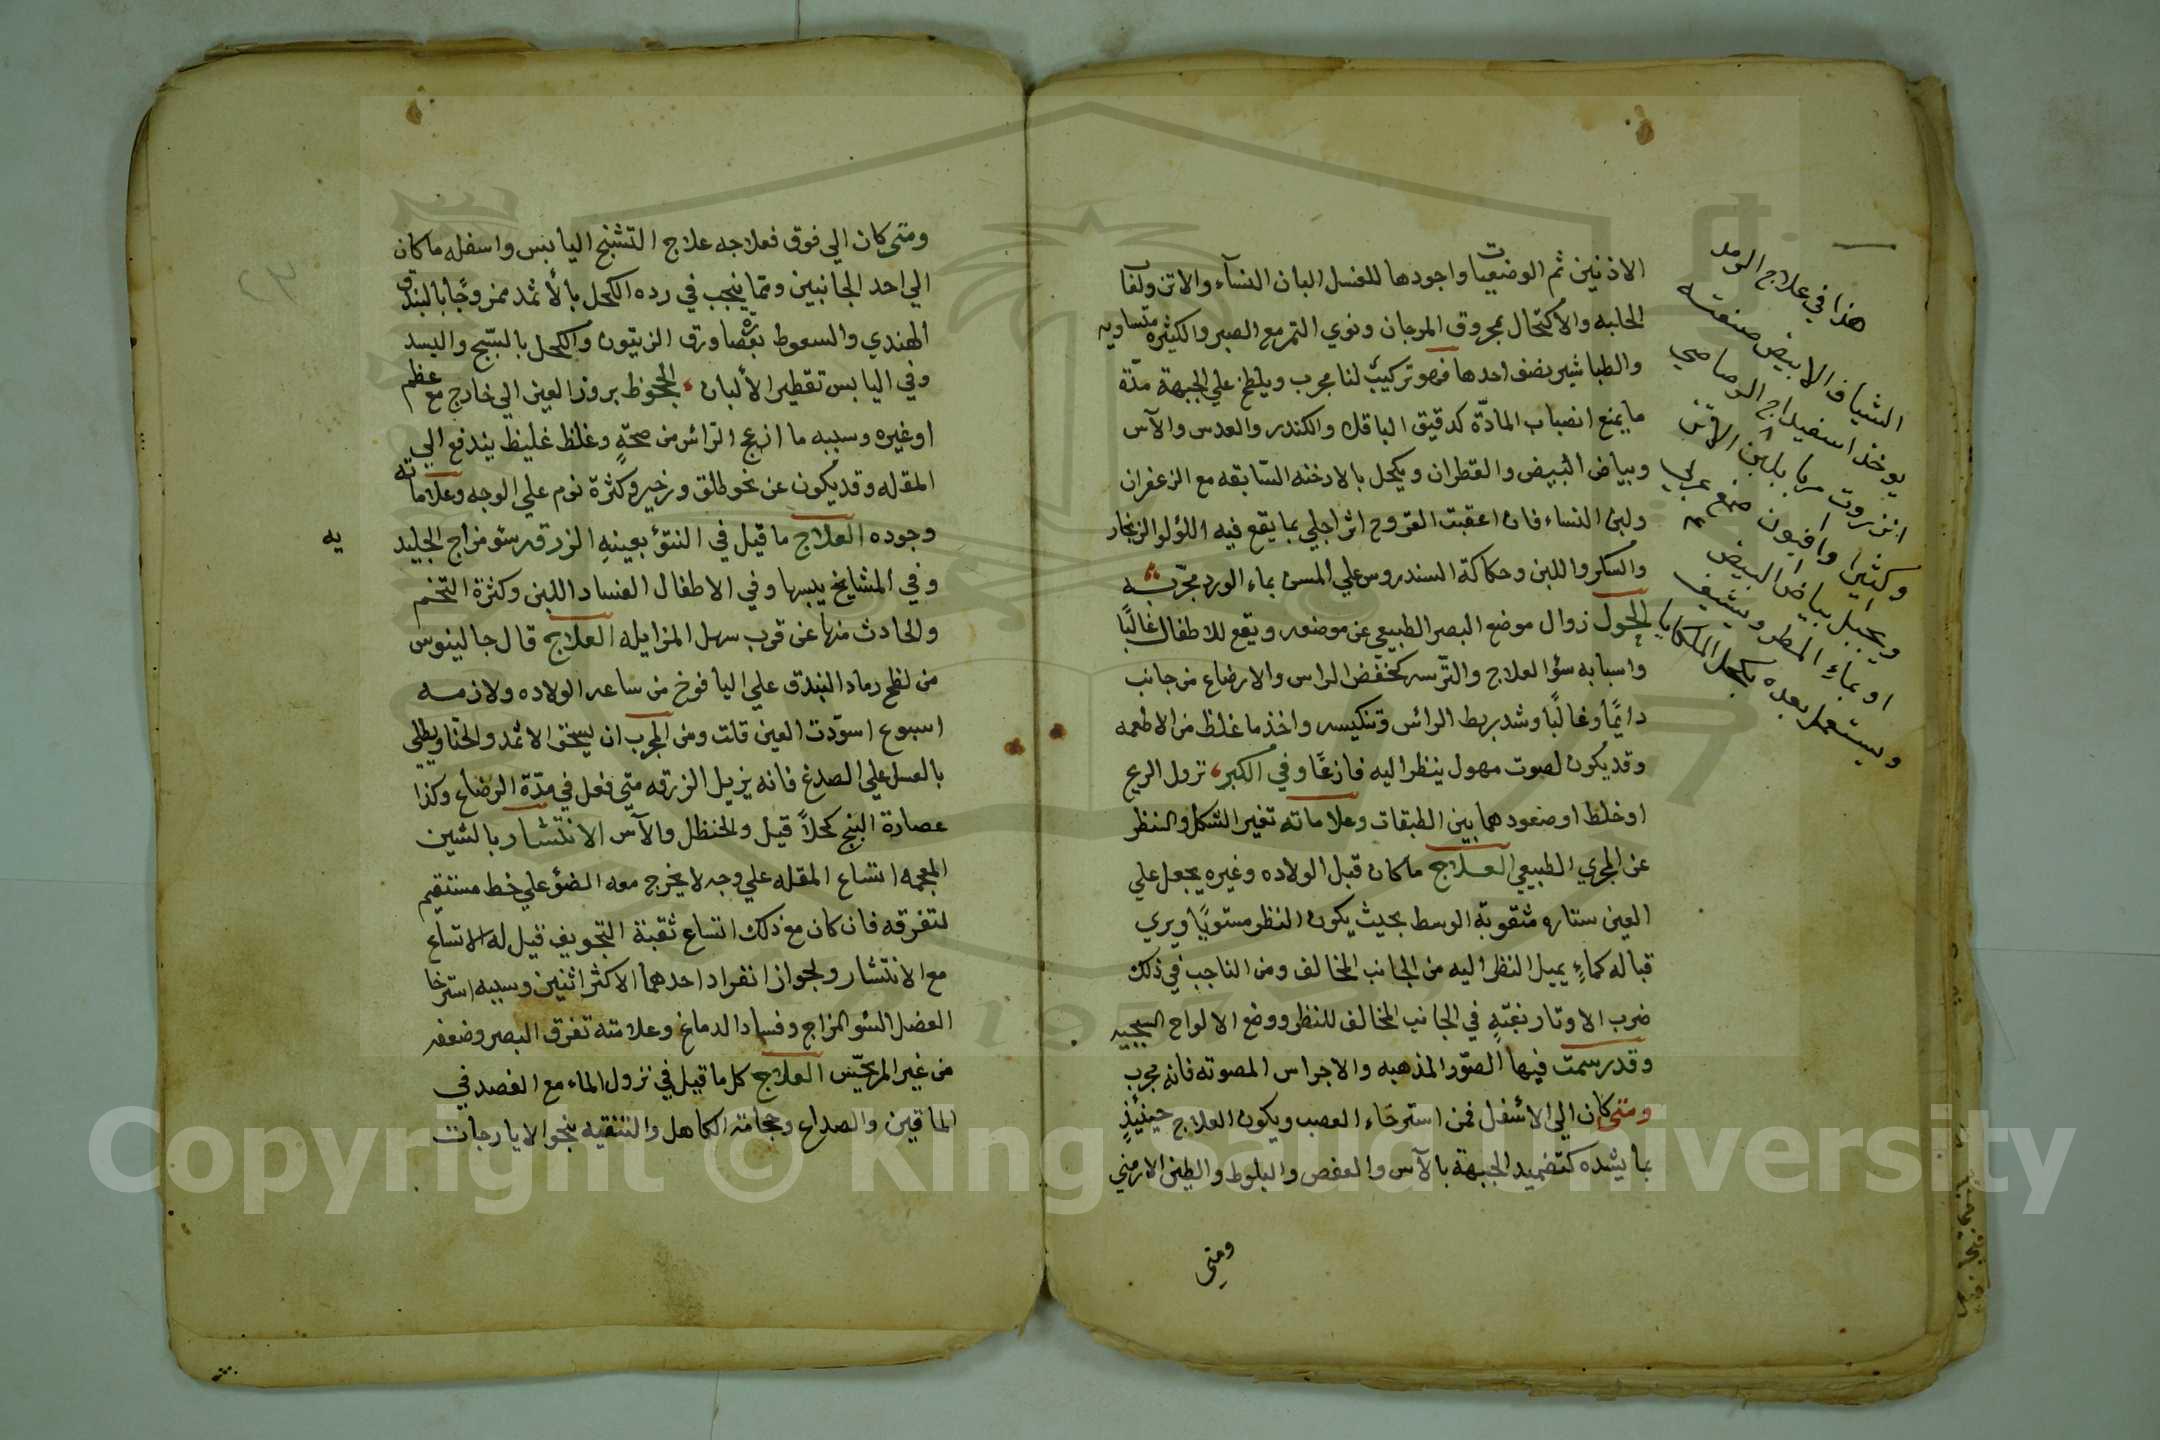 الاذنين ثم الوضعيات واجودها للغسل البان النسآء والاتن ولعاب
الحلبه والاكتحال بمحروق المرجان ونوي التمر مع الصبر والكثيره متساويه
والطباشير نصف احدها فهو تركيب لنا مجرب ويلطخ علي الجبهة مدّة
ما يمنع انصباب المادّة كدقيق الباقلا والكندر والعدس والآس
وبياض البيض والقطران ويكحل بالادخنه السّابقه مع الزعفران
ولبن النساء فان اعقبت القروح اثرا جلي بما يقع فيه اللؤلو الزنجار
والسكر واللبن وحكاكة السندروس علي المسن بماء الورد مجرّب
الحول زوال موضع البصر الطبيعي عن موضعه ويقع للاطفال غالبًا
واسبابه سؤ العلاج والتّرسه كخفض الراس والارضاع من جانب
دايمًا وغالبًا وشد بربط الرائس وتنكيسه واخذ ما غلظ من الاطعمه
وقد يكون لصوت مهول ينظر اليه فازعًا وفي الكبر نزول الريح
او خلط او صعودهما بين الطبقات وعلاماته تغير الشكل والنظر
عن المجري الطبيعي العلاج ما كان قبل الولاده وغيره يجعل علي
العين ستاره مثقوبة الوسط بحيث يكون النظر مستويًا ويري
قباله كماءٍ يميل النظر اليه من الجانب المخالف ومن الناجب في ذلك
ضرب الاوتار بغتةٍ في الجانب المخالف للنظر ووضع الالواح السبجيه
وقد رسمت فيها الصّور المذهبه والاجراس المصوته فانه مجرب
ومتي كان الي الاسفل فمن استرخاء العصب ويكون العلاج حينيئذٍ
بما يشده كتضميد الجبهة بالآس والعفص والبلوط والطين الارمني
ومتي
هذا في علاج الرمد
الشياف الابيض صنعته
يوخذ اسفيداج الرصاصي
انزروت مربا بلبن الاتن
وكثيرا وافيون صمغ عربي
ويجبل ببياض البيض
او بماء المطر ويشيف
ويستعمل بعده بكحل الملكايا
ومتي كان الي فوق فعلاجه علاج التشنج اليابس واسفله ما كان
الي احد الجانبين ومما ينجب في رده الكحل بالأثمد ممزوجًا بالبندق
الهندي والسعوط بعصارة ورق الزيتون والكحل بالسّبج والبسد
وفي اليابس تقطير الألبان، الجحوظ بروز العين الي خارج مع عظم
او غيره وسببه ما ازعج الرّائس من صحّةٍ وغلظ غليظ يندفع الي
المقله وقد يكون عن نحو طلق وزحير وكثرة نوم علي الوجه وعلاماته
وجوده العلاج ما قيل في النتؤ بعينهِ الزرقه سؤ مزاج الجليد
وفي المشايخ يبسها وفي الاطفال الفساد اللبن وكثرة التخم
والحادث منها عن قرب سهل المزايله العلاج قال جالينوس
من لطخ رماد البندق علي اليافوخ من ساعه الولاده ولازمه
اسبوع اسوّدت العين قلت ومن المجرب ان يسحق الاثمد والحنّا ويطلي
بالعسل علي الصدغ فانه يزيل الزرقه متي فعل في مدّة الرضاع وكذا
عصارة البنج كحلاً قيل والحنظل والآس الانتشار بالشين
المعجمه اتساع المقله علي وجه لا يخرج معه الضؤ علي خط مستقيم
لتفرقه فان كان مع ذلك اتساع ثقبة التجويف قيل له الاتساع
مع الانتشار ولجواز انفراد احدهما الاكثر اثنين وسببه استرخا
العضل السّو المزاج وفساد الدماغ وعلامته تفرق البصر وضعفه
من غير المريحيّس العلاج كل ما قيل في نزول الماء مع الفصد في
الماقين والصداع وحجامة الكاهل والتنقيه بنحو الايارجات
يه
Copyright © King Saud University